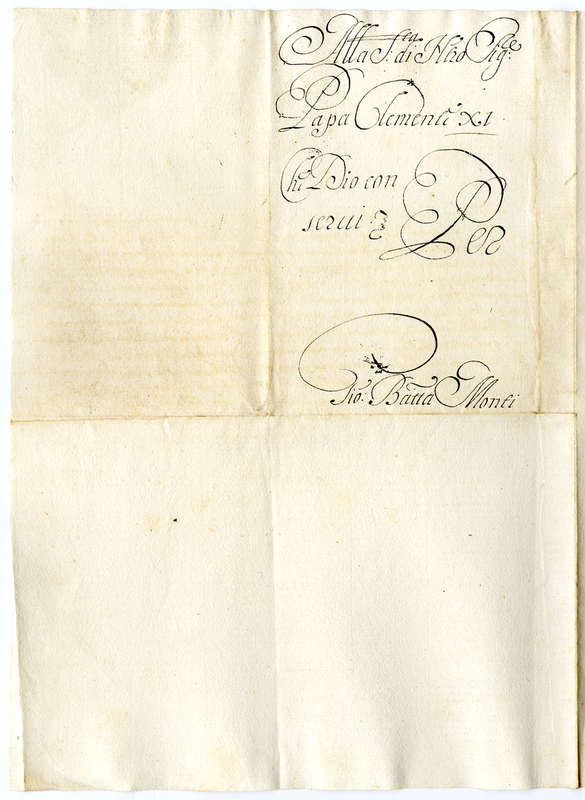 Alla S.tà di Nr̃o Sig.re
Papa Clemente XI
Che Dio con
serui
Per
Gio: Batta Monti